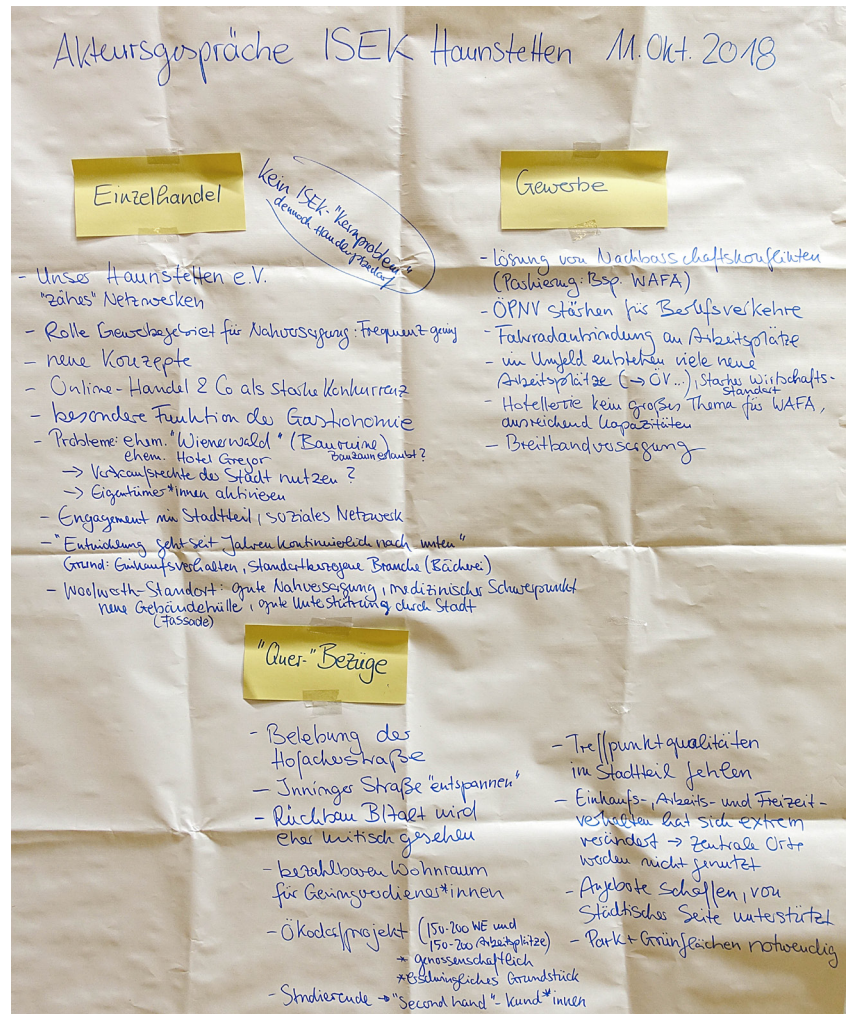 Akteursgespräche ISEK Haunstetten 11. Okt. 2018
Einzelhandel
kein ISEK-"Kernproblem"
dennoch Handlungsbedarf
- Unser Haunstetten e.V.
"zähes" Netzwerken
- Rolle Gewerbegebiet für Nahversorgung: Frequenz gering
- neue Konzepte
- Online-Handel & Co als starke Konkurrenz
- besondere Funktion der Gastronomie
- Probleme: ehem. "Wienerwald" (Bauruine)
ehem. Hotel Gregor Bauzaun erlaubt?
-> Vorkaufsrechte der Stadt nutzen?
-> Eigentümer*innen aktivieren
- Engagement im Stadtteil, soziales Netzwerk
- "Entwicklung geht seit Jahren kontinuierlich nach unten"
Grund: Einkaufsverhalten, standortbezogene Branche (Bäckerei)
- Woolworth-Standort: gute Nahversorgung, medizinischer Schwerpunkt
neue Gebäudehülle, gute Unterstützung durch Stadt
(Fassade)
Gewerbe
- Lösung von Nachbarschaftskonflikten
(Parkierung: Bsp. WAFA)
- ÖPNV stärken für Berufsverkehre
- Fahrradanbindung an Arbeitsplätze
- im Umfeld entstehen viele neue
Arbeitsplätze (-> ÖV...), starker Wirtschafts-
standort
- Hotellerie kein großes Thema für WAFA,
ausreichend Kapazitäten
- Breitbandversorgung
"Quer-"Bezüge
- Belebung der
Hofackerstraße
- Inninger Straße "entspannen"
- Rückbau B17alt wird
eher kritisch gesehen
- bezahlbaren Wohnraum
für Geringverdiener*innen
- Ökodorfprojekt (150-200 WE und
150-200 Arbeitsplätze)
* genossenschaftlich
* erschwingliches Grundstück
- Studierende -> "Second hand"-Kund*innen
- Treffpunktqualitäten
im Stadtteil fehlen
- Einkaufs-, Arbeits- und Freizeit-
verhalten hat sich extrem
verändert -> zentrale Orte
werden nicht genutzt
- Angebote schaffen, von
Städtischer Seite unterstützt
- Park + Grünflächen notwendig